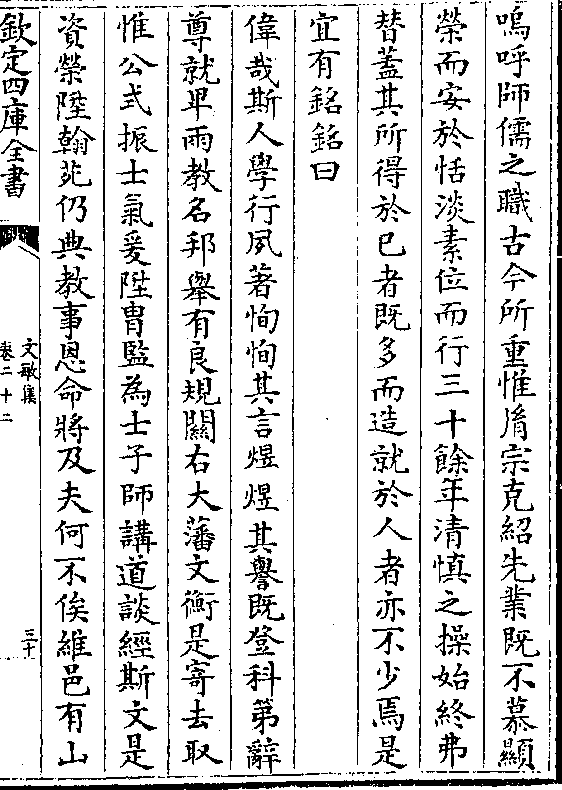 嗚呼師儒之職古今所重惟胤宗克紹先業既不慕顯
榮而安於恬淡素位而行三十餘年清慎之操始終弗
替葢其所得於己者既多而造就於人者亦不少焉是
宜有銘銘曰
偉哉斯人學行夙著恂恂其言煜煜其譽既登科第辭
尊就卑兩教名邦舉有良規關右大藩文衡是寄去取
惟公式振士氣爰陞胄監為士子師講道談經斯文是
資榮陞翰苑仍典教事恩命將及夫何不俟維邑有山
欽定四庫全書
文敏集
卷二十二
三十